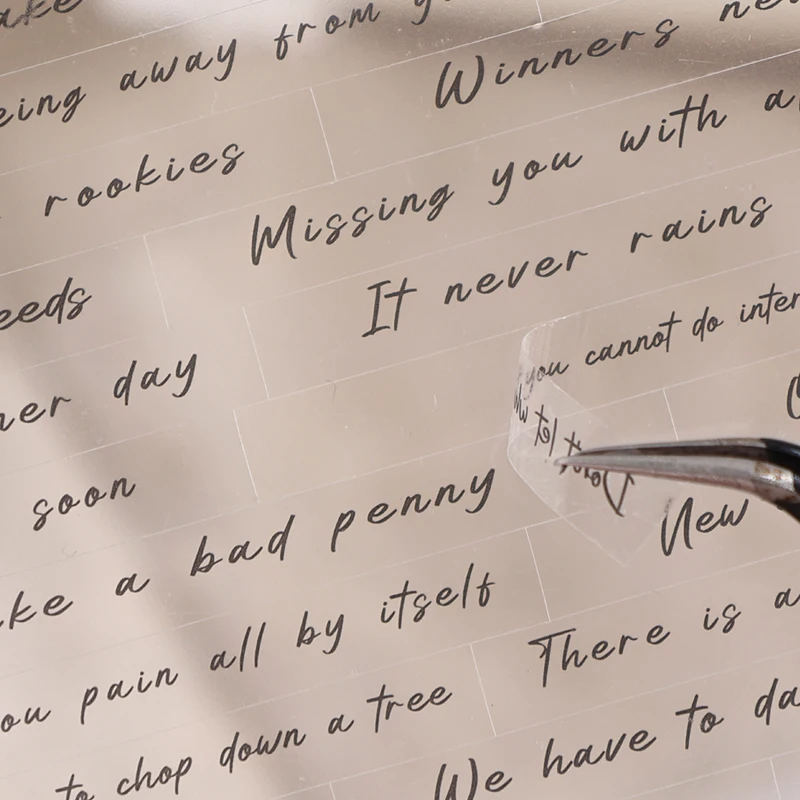 away from
Winners
rookies
Missing you with
It never rains
eeds
you cannot do inter
her day
Don't let wh
soon
New
ke a bad penny
ou pain all by itself
There is a
to chop down a tree
We have to da